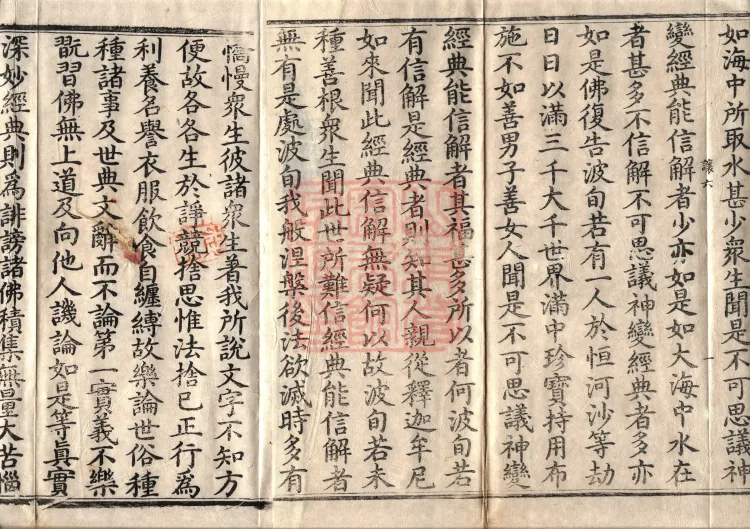 如海中所取水甚少衆生聞是不可思議神
變經典能信解者少亦如是如大海中水在
讓六
者甚多不信解不可思議神變經典者多亦
如是佛復告波旬若有一人於恒河沙等劫
日日以滿三千大千世界滿中珍寶持用布
施不如善男子善女人聞是不可思議神變
經典能信解者其福甚多所以者何波旬若
有信解是經典者則知其人親從釋迦牟尼
如來聞此經典信解無疑何以故波旬若未
種善根衆生聞此世所難信經典能信解者
無有是處波旬我般涅槃後法欲滅時多有
憍慢衆生彼諸衆生着我所說文字不知方
便故各各生於諍競捨思惟法捨己正行爲
利養名譽衣服飲食自纏縛故樂論世俗種
種諸事及世典文辭而不論第一實義不樂
翫習佛無上道及向他人譏論如是等真實
深妙經典則爲誹謗諸佛積集無量大苦惱